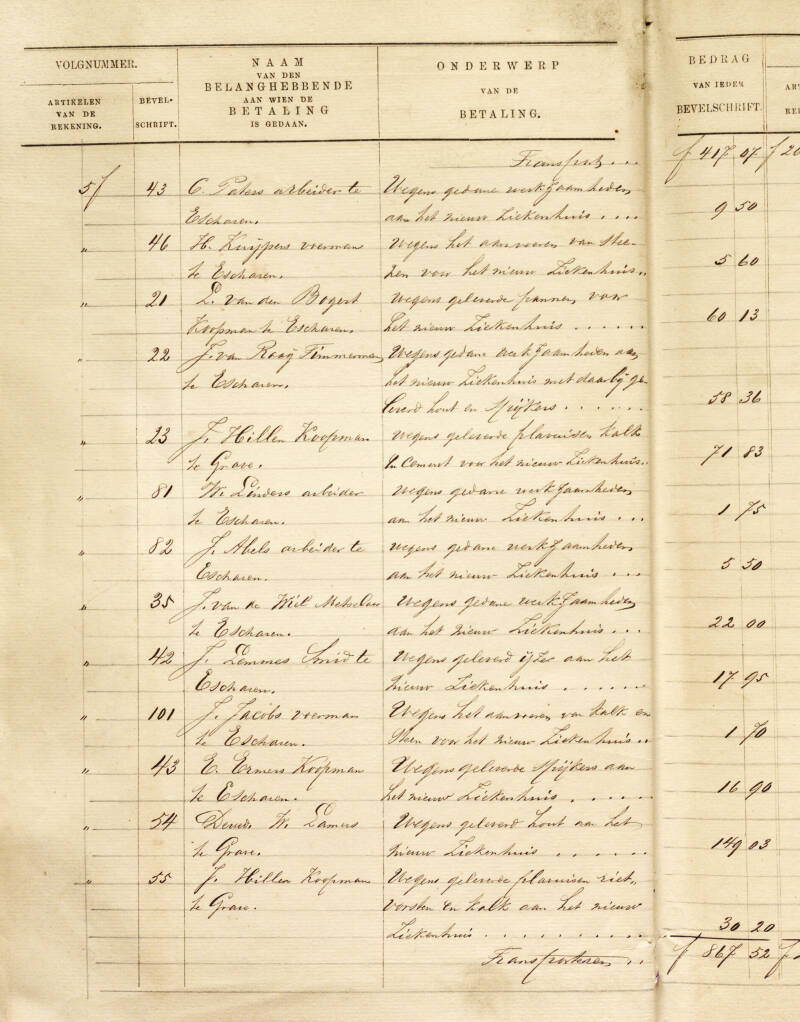 VOLGNUMMER.
ARTIKELEN VAN DE REKENING.
BEVEL-SCHRIFT.
NAAM
VAN DEN
BELANGHEBBENDE
AAN WIEN DE
BETALING
IS GEDAAN.
ONDERWERP
VAN DE
BETALING.
BEDRAG
VAN IEDER
BEVELSCHRIFT.
Transport... f 417 07 f 20
57 43 C. Peters arbeider te Wegens gedane werkzaamheden
Escharen. aan het nieuw Ziekenhuis.... 9 50
" 46 H. Kuijpers voerman wegens het aanvoeren van stee-
te Escharen. nen voor het nieuw Ziekenhuis.. 5 60
" 21 L. van den Bogert wegens geleverde pannen voor
Koopman te Escharen. het nieuw Ziekenhuis...... 60 13
" 22 J. van Raaij Timmerman Wegens gedane werkzaamheden aan
te Escharen. het nieuw Ziekenhuis met daarbij ge-
leverd hout en spijkers...... 58 36
" 23 J. Hillen Koopman wegens geleverde plavuisen kalk
te Grave. en cement voor het nieuw Ziekenhuis.. 71 83
" 81 W. Linders arbeider wegens gedane werkzaamheden
te Escharen. aan het nieuw Ziekenhuis... 1 75
" 82 J. Abels arbeider te wegens gedane werkzaamheden
Escharen. aan het nieuw Ziekenhuis... 5 50
" 35 J. van de Wiel Metselaar Wegens gedane werkzaamheden
te Escharen. aan het nieuw Ziekenhuis... 22 00
" 42 J. Lemmes Smid te Wegens geleverd ijzer aan het
Escharen. nieuw Ziekenhuis...... 17 95
" 101 J. Jacobs voerman Wegens het aanvoeren van kalk en
te Escharen. steen voor het nieuw Ziekenhuis.. 1 70
" 43 E. Ermers Koopman Wegens geleverde spijkers aan
te Escharen. het nieuw Ziekenhuis..... 16 90
" 54 W. Lamers Wegens geleverd hout aan het
te Grave. nieuw Ziekenhuis...... 149 03
" 55 J. Hillen Koopman Wegens geleverde plavuisen riet"
te Grave. vorsten en kalk aan het nieuw
Ziekenhuis......... 30 20
Transporteren.. f 867 52 f